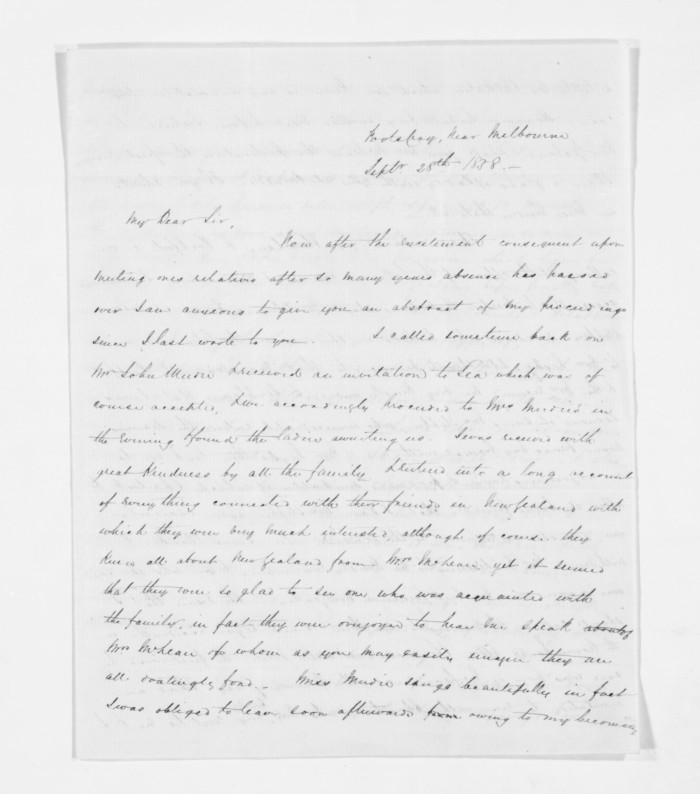 Footscray, Near Melbourne
Septr 28th 1858.-
My Dear Sir,
Now after the excitement consequent upon
meeting ones relatives after so many years absence has passed
over I am anxious to give you an abstract of my proceedings
since I last wrote to you. I called sometime back on
Mr John & received an invitation to Tea which was of
course accepted, & we accordingly proceeded to Mrs in
the evening & found the ladies awaiting us. I was received with
great kindness by all the family & entered into a long account
of everything connected with their friends in New Zealand with
which they were very much interested, although of course they
knew all about New Zealand from Mrs McLean yet it seemed
that they were so glad to see one who was acquainted with
the family, in fact they were overjoyed to hear me speak
Mrs McLean of whom as you may easily they are
all fond.- Miss sings beautifully in fact
I was obliged to leave soon afterwards from owing to my becoming